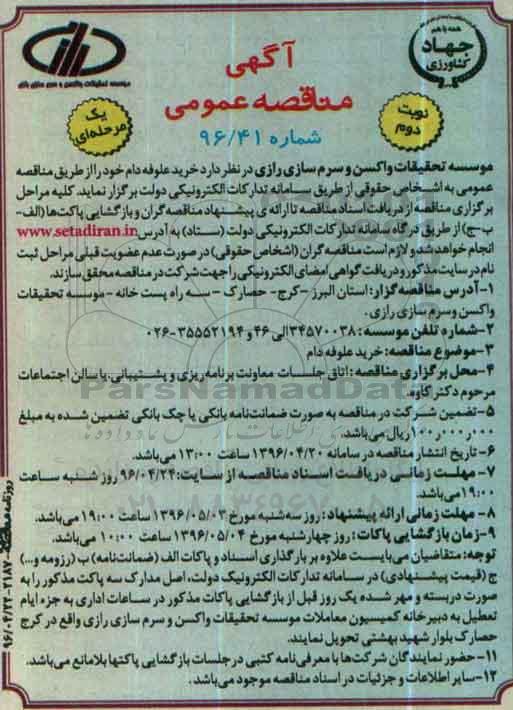 همه با هم
جهاد
کشاورزی
موسسه تحقیقات واکسن و سرم سازی رازی
آگهی
مناقصه عمومی
شماره ۹۶/۴۱
نوبت
دوم
یک
مرحله‌ای
موسسه تحقیقات واکسن و سرم سازی رازی در نظر دارد خرید علوفه دام خود را از طریق مناقصه
عمومی به اشخاص حقوقی از طریق سامانه تدارکات الکترونیکی دولت برگزار نماید. کلیه مراحل
برگزاری مناقصه از دریافت اسناد مناقصه تا ارائه ی پیشنهاد مناقصه گران و بازگشایی پاکت‌ها (الف-
ب-ج) از طریق درگاه سامانه تدارکات الکترونیکی دولت (ستاد) به آدرس www.setadiran.ir
انجام خواهد شد و لازم است مناقصه گران (اشخاص حقوقی) در صورت عدم عضویت قبلی مراحل ثبت
نام در سایت مذکور و دریافت گواهی امضای الکترونیکی را جهت شرکت در مناقصه محقق سازند.
۱-آدرس مناقصه گزار: استان البرز -کرج- حصارک - سه راه پست خانه -موسسه تحقیقات
واکسن و سرم سازی رازی .
۲-شماره تلفن موسسه: ۳۴۵۷۰۰۳۸ الی ۴۶ و ۳۵۵۵۲۱۹۴-۰۲۶
۳-موضوع مناقصه: خرید علوفه دام
۴-محل برگزاری مناقصه: اتاق جلسات معاونت برنامه ریزی و پشتیبانی. یا سالن اجتماعات
مرحوم دکتر کاوه.
۵-تضمین شرکت در مناقصه به صورت ضمانت‌نامه بانکی یا چک بانکی تضمین شده به مبلغ
ریال می‌باشد.
۶- تاریخ انتشار مناقصه در سامانه ۱۳۹۶/۰۴/۲۰ ساعت ۱۳:۰۰ می‌باشد.
۷- مهلت زمانی دریافت اسناد مناقصه از سایت: ۹۶/۰۴/۲۴ روز شنبه ساعت
۱۹:۰۰ می‌باشد.
۸- مهلت زمانی ارائه پیشنهاد: روز سه‌شنبه مورخ ۱۳۹۶/۰۵/۰۳ ساعت ۱۹:۰۰ می‌باشد.
۹-زمان بازگشایی پاکات: روز چهارشنبه مورخ ۱۳۹۶/۰۵/۰۴ ساعت ۱۰:۰۰ می‌باشد.
توجه: متقاضیان می‌بایست علاوه بر بارگذاری اسناد و پاکات الف (ضمانت‌نامه) ب (رزومه و...)
ج (قیمت پیشنهادی) در سامانه تدارکات الکترونیک دولت، اصل مدارک سه پاکت مذکور را به
صورت دربسته و مهر شده یک روز قبل از بازگشایی پاکات مذکور در ساعات اداری به جزء ایام
تعطیل به دبیرخانه کمیسیون معاملات موسسه تحقیقات واکسن و سرم سازی رازی واقع در کرج
حصارک بلوار شهید بهشتی تحویل نمایند.
۱۱-حضور نمایندگان شرکت‌ها با معرفی‌نامه کتبی در جلسات بازگشایی پاکتها بلامانع می‌باشد.
۱۲-سایر اطلاعات و جزئیات در اسناد مناقصه موجود می‌باشد.
ParsNamadData